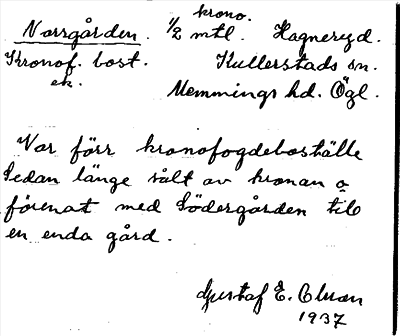 krono.
Norrgården. 1/2 mtl. Hagneryd.
Kronof. bost. Kullerstads sn.
ek. Memmings hd. Ögl.
Var förr kronofogdeboställe
Sedan länge sålt av kronan o
förenat med Södergården till
en enda gård.
Gustaf E. Olman
1937